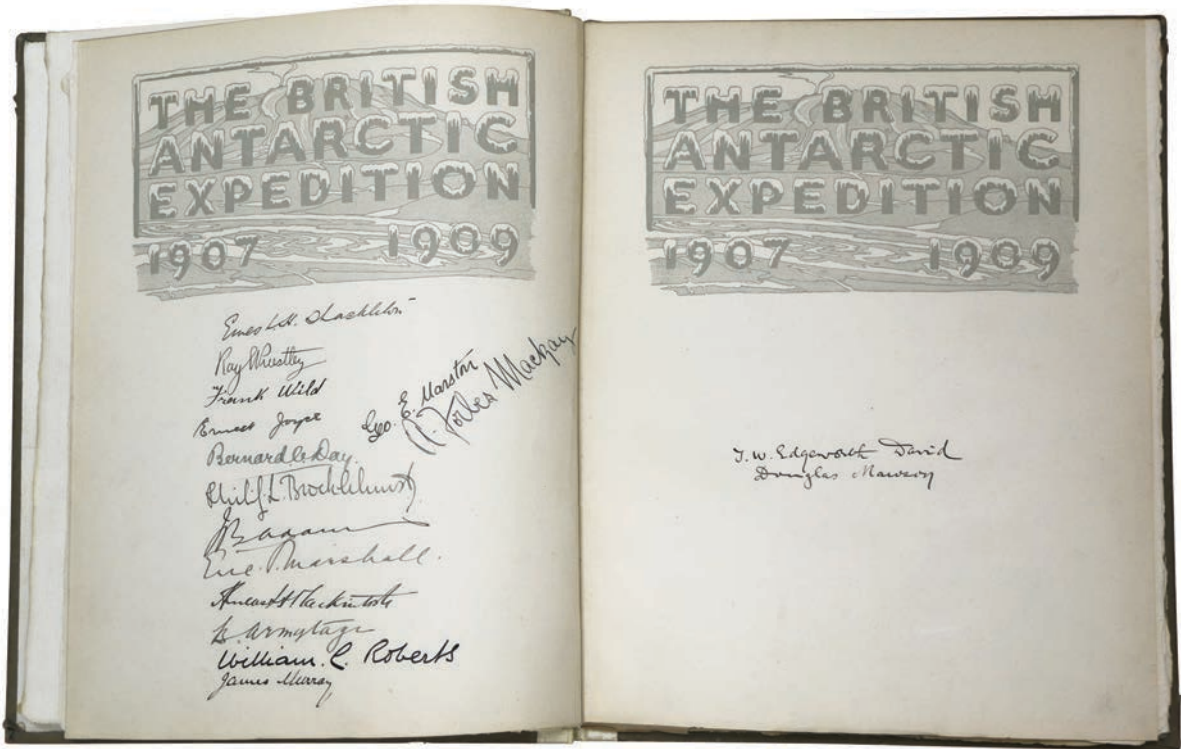 THE BRITISH
ANTARCTIC
EXPEDITION
1907 1909
Ernest H. Shackleton
Raymond Priestley
Frank Wild
Ernest Joyce
Bernard C. Day.
Philip L. Brocklehurst.
JB Adams
Eric P. Marshall.
Aeneas L A Mackintosh
B. Armytage
William. C. Roberts
James Murray
Geo. E. Marston
A. Forbes Mackay
THE BRITISH
ANTARCTIC
EXPEDITION
1907 1909
T. W. Edgeworth David
Douglas Mawson